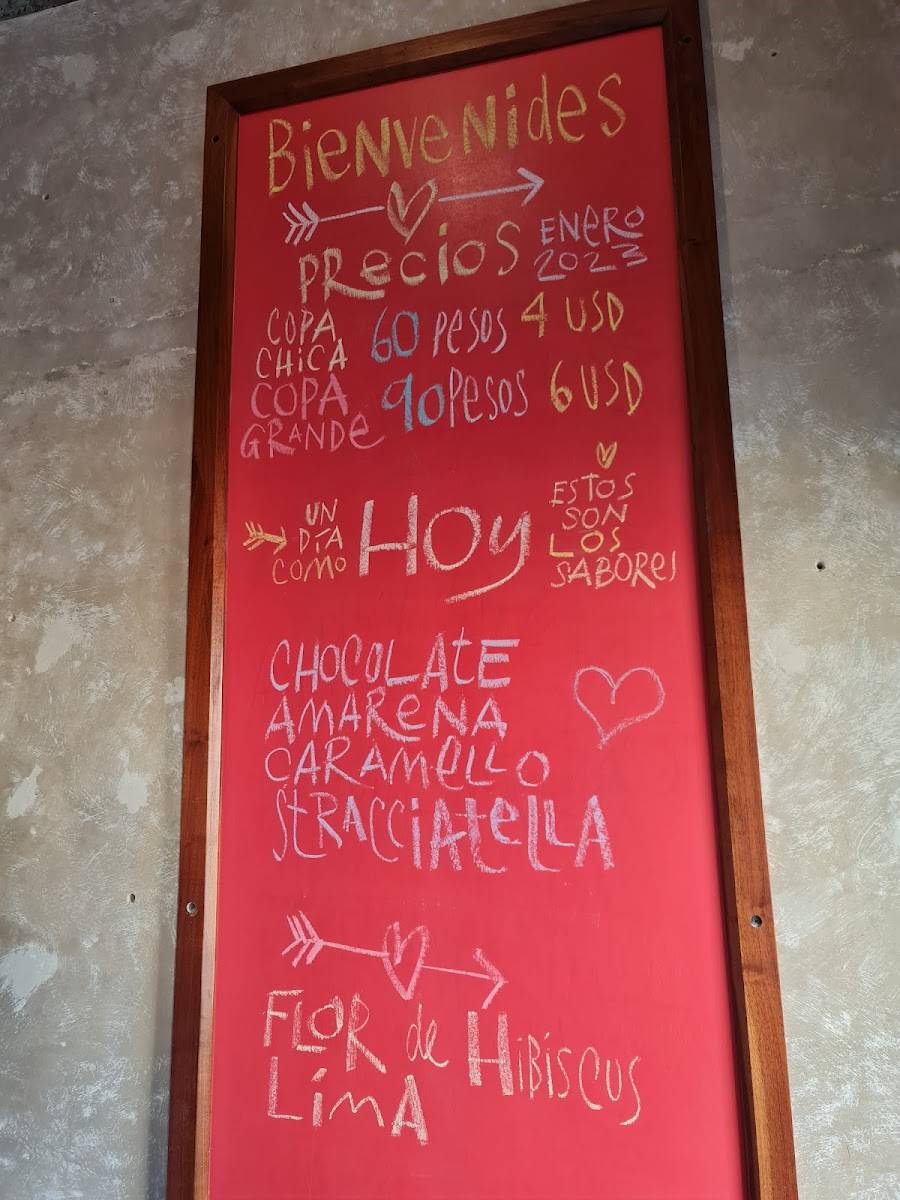 Bienvenides
Precios
Enero
2023
Copa
chica
60 pesos 4 USD
Copa
grande
90 pesos 6 USD
un
día
como
Hoy
Estos
son
los
sabores
Chocolate
Amarena
Caramello
Stracciatella
Flor de Hibiscus
Lima